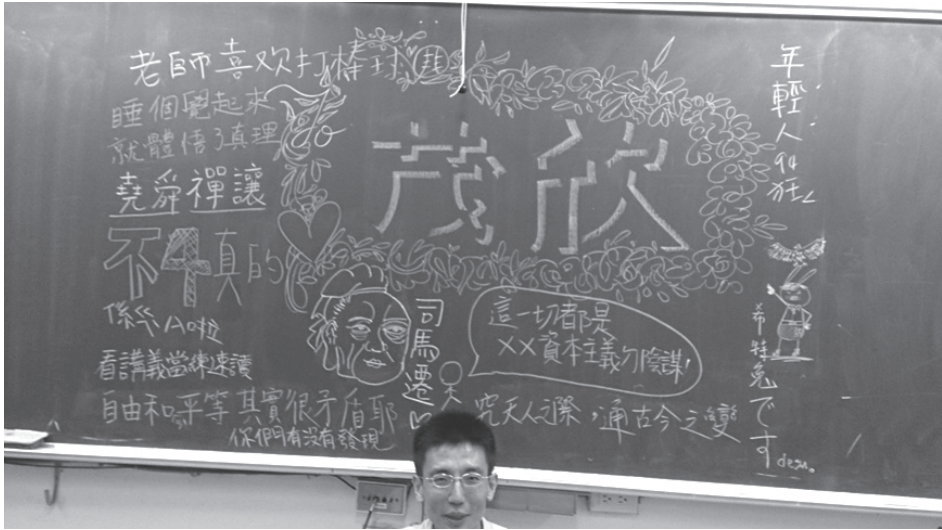 老師喜欢打棒球
睡個覺起來
就體悟了真理
堯舜禪讓
不4真的
係金A啦
看講義當練速讀
自由和平等其實很矛盾耶
你們有沒有發現
茂欣
司馬遷
這一切都是
××資本主義ㄉ陰謀!
究天人之際,通古今之變
年輕人94狂
希特兔です
desu。